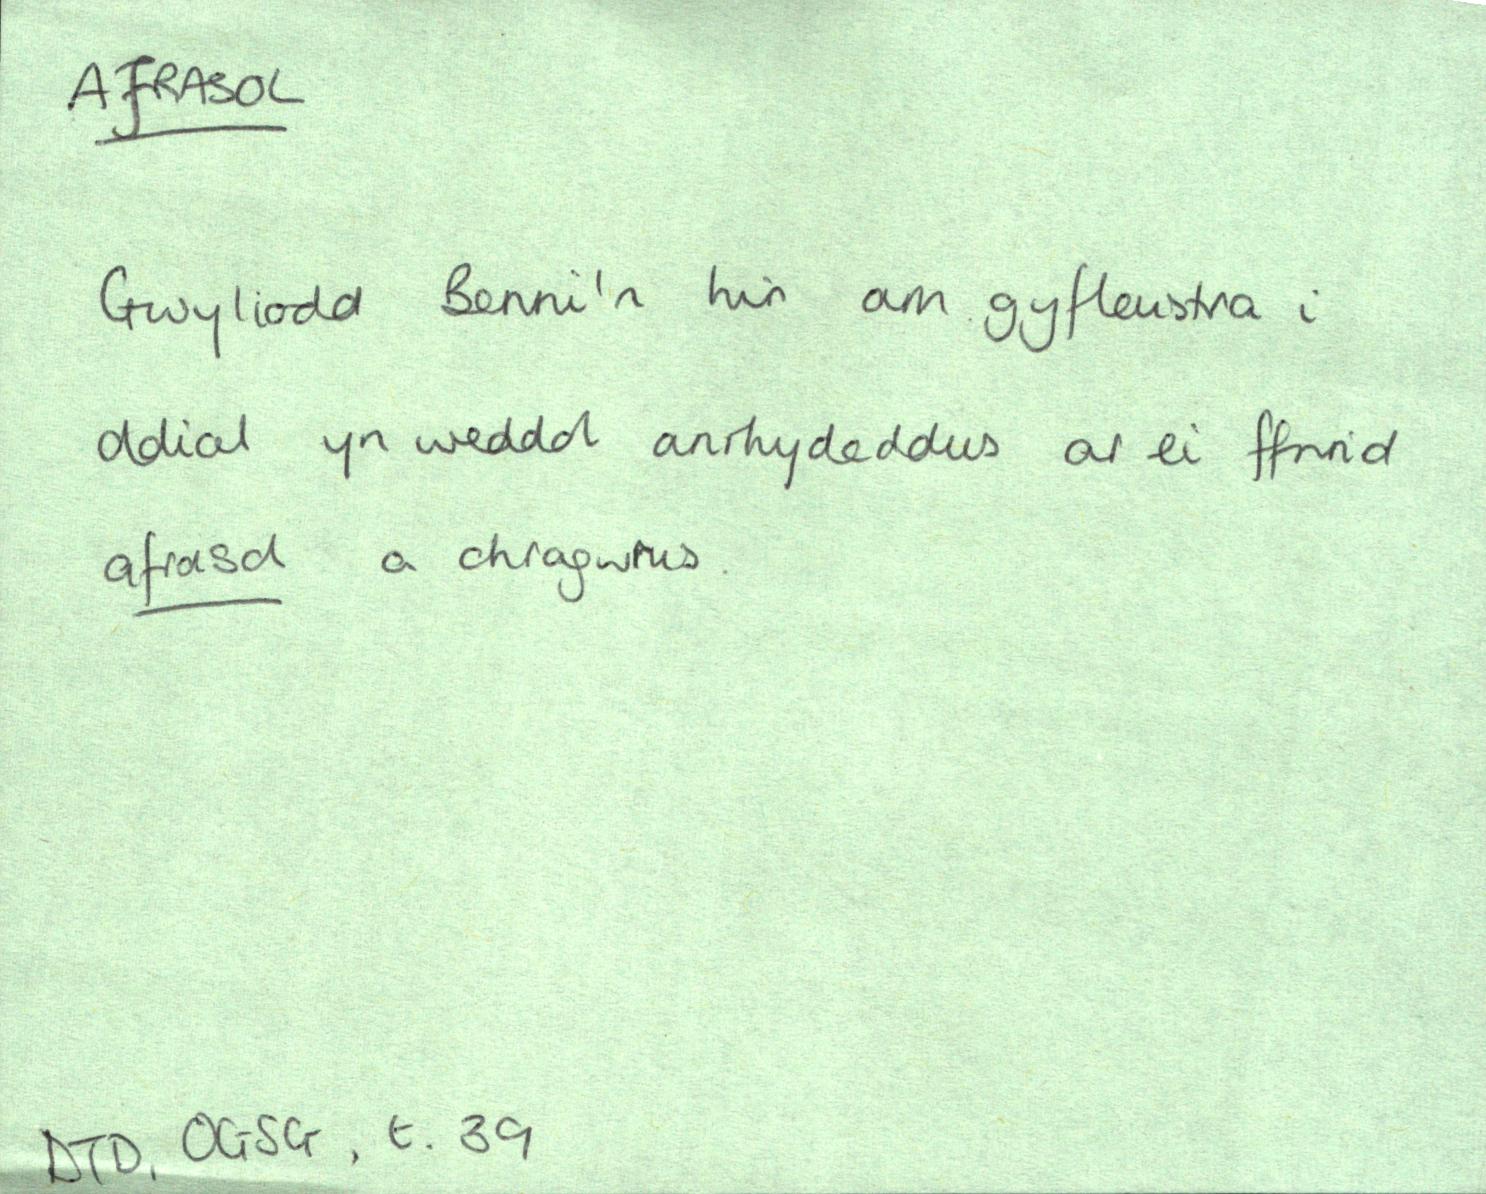 AFRASOL
Gwyliodd Benni'n hir am gyfleustra i
ddial yn weddol anrhydeddus ar ei ffrwd
afrasol a chragwrus.
DTD, OGSG, t. 39